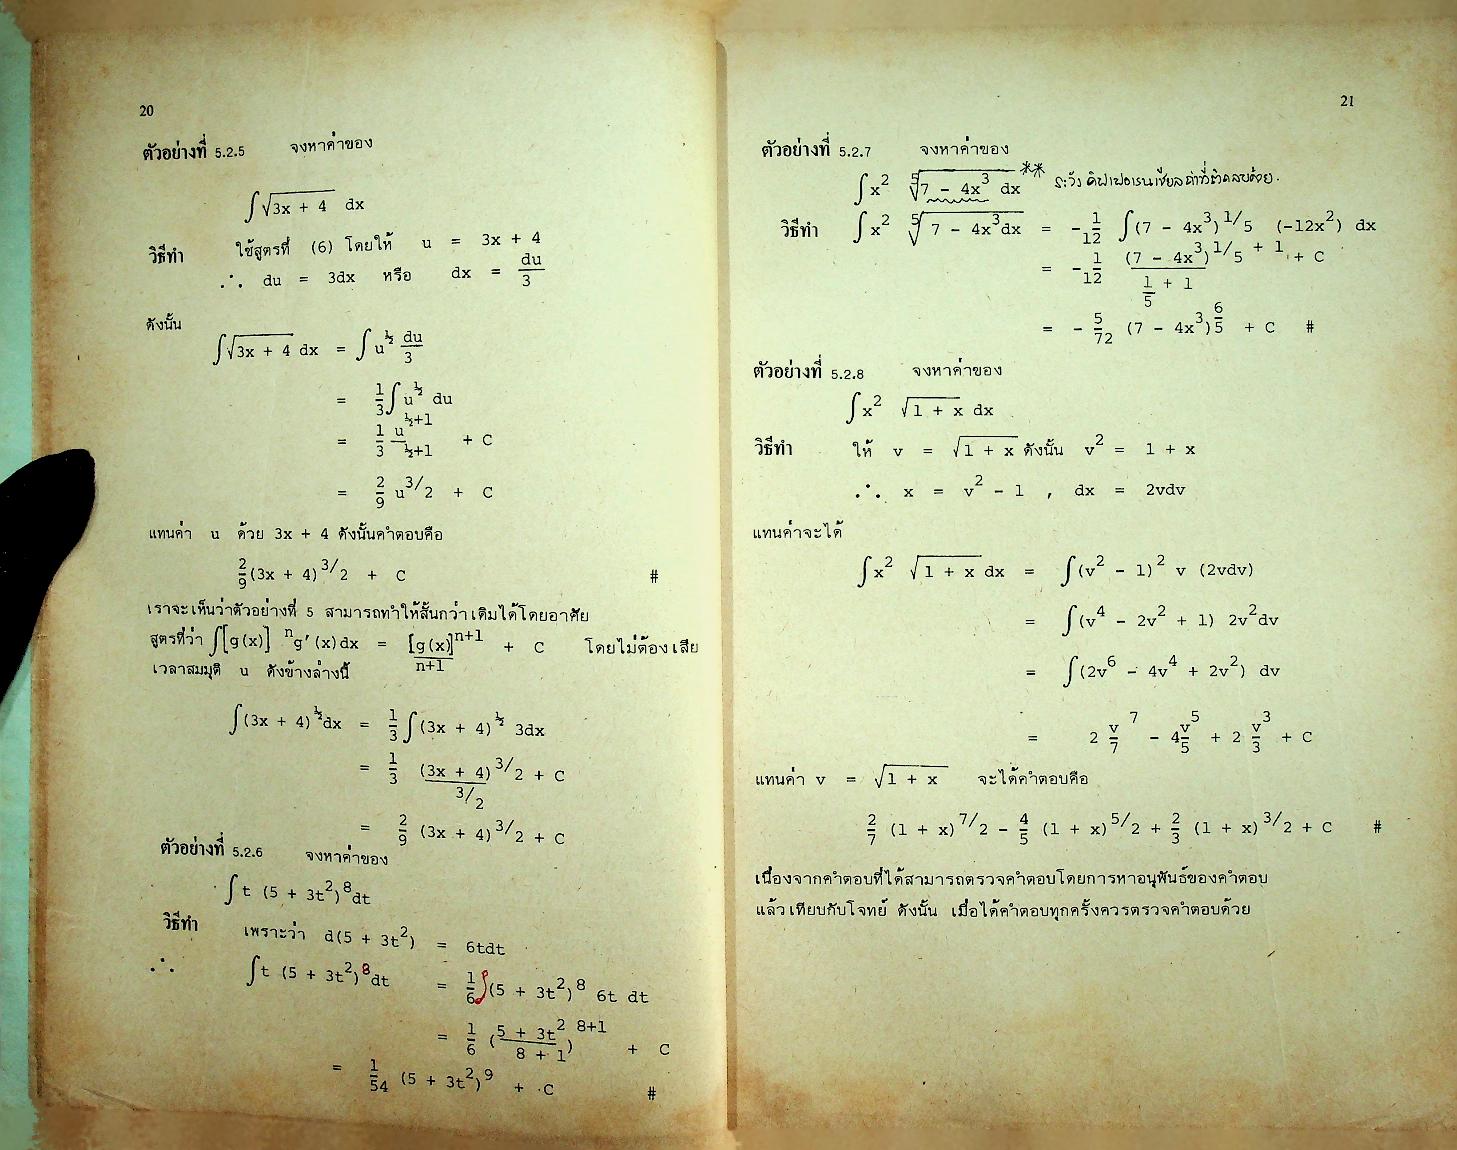 20
ตัวอย่างที่ 5.2.5 จงหาค่าของ
∫√(3x + 4) dx
วิธีทำ ใช้สูตรที่ (6) โดยให้ u = 3x + 4
∴ du = 3dx หรือ dx = du/3
ดังนั้น
∫√(3x + 4) dx = ∫u^½ du/3
= 1/3 ∫u^½ du
= 1/3 u^(½+1)/(½+1) + C
= 2/9 u^(3/2) + C
แทนค่า u ด้วย 3x + 4 ดังนั้นคำตอบคือ
2/9 (3x + 4)^(3/2) + C #
เราจะเห็นว่าตัวอย่างที่ 5 สามารถทำให้สั้นกว่าเดิมได้โดยอาศัย
สูตรที่ว่า ∫[g(x)]^n g′(x)dx = [g(x)]^(n+1)/(n+1) + C โดยไม่ต้องเสีย
เวลาสมมุติ u ดังข้างล่างนี้
∫(3x + 4)^½ dx = 1/3 ∫(3x + 4)^½ 3dx
= 1/3 (3x + 4)^(3/2)/(3/2) + C
= 2/9 (3x + 4)^(3/2) + C
ตัวอย่างที่ 5.2.6 จงหาค่าของ
∫t (5 + 3t²)⁸dt
วิธีทำ เพราะว่า d(5 + 3t²) = 6tdt
∴ ∫t (5 + 3t²)⁸dt = 1/6 ∫(5 + 3t²)⁸ 6t dt
= 1/6 (5 + 3t²/8 + 1)^(8+1) + C
= 1/54 (5 + 3t²)⁹ + C #
21
ตัวอย่างที่ 5.2.7 จงหาค่าของ
∫x² ⁵√(7 - 4x³) dx ** ระวัง ดิฟเฟอเรนเชียลค่าที่ติดลบด้วย.
วิธีทำ ∫x² ⁵√(7 - 4x³)dx = -1/12 ∫(7 - 4x³)^(1/5) (-12x²) dx
= -1/12 (7 - 4x³)^(1/5 + 1)/(1/5 + 1) + C
= - 5/72 (7 - 4x³)^(6/5) + C #
ตัวอย่างที่ 5.2.8 จงหาค่าของ
∫x² √(1 + x) dx
วิธีทำ ให้ v = √(1 + x) ดังนั้น v² = 1 + x
∴ x = v² - 1 , dx = 2vdv
แทนค่าจะได้
∫x² √(1 + x) dx = ∫(v² - 1)² v (2vdv)
= ∫(v⁴ - 2v² + 1) 2v²dv
= ∫(2v⁶ - 4v⁴ + 2v²) dv
= 2 v⁷/7 - 4 v⁵/5 + 2 v³/3 + C
แทนค่า v = √(1 + x) จะได้คำตอบคือ
2/7 (1 + x)^(7/2) - 4/5 (1 + x)^(5/2) + 2/3 (1 + x)^(3/2) + C #
เนื่องจากคำตอบที่ได้สามารถตรวจคำตอบโดยการหาอนุพันธ์ของคำตอบ
แล้วเทียบกับโจทย์ ดังนั้น เมื่อได้คำตอบทุกครั้งควรตรวจคำตอบด้วย